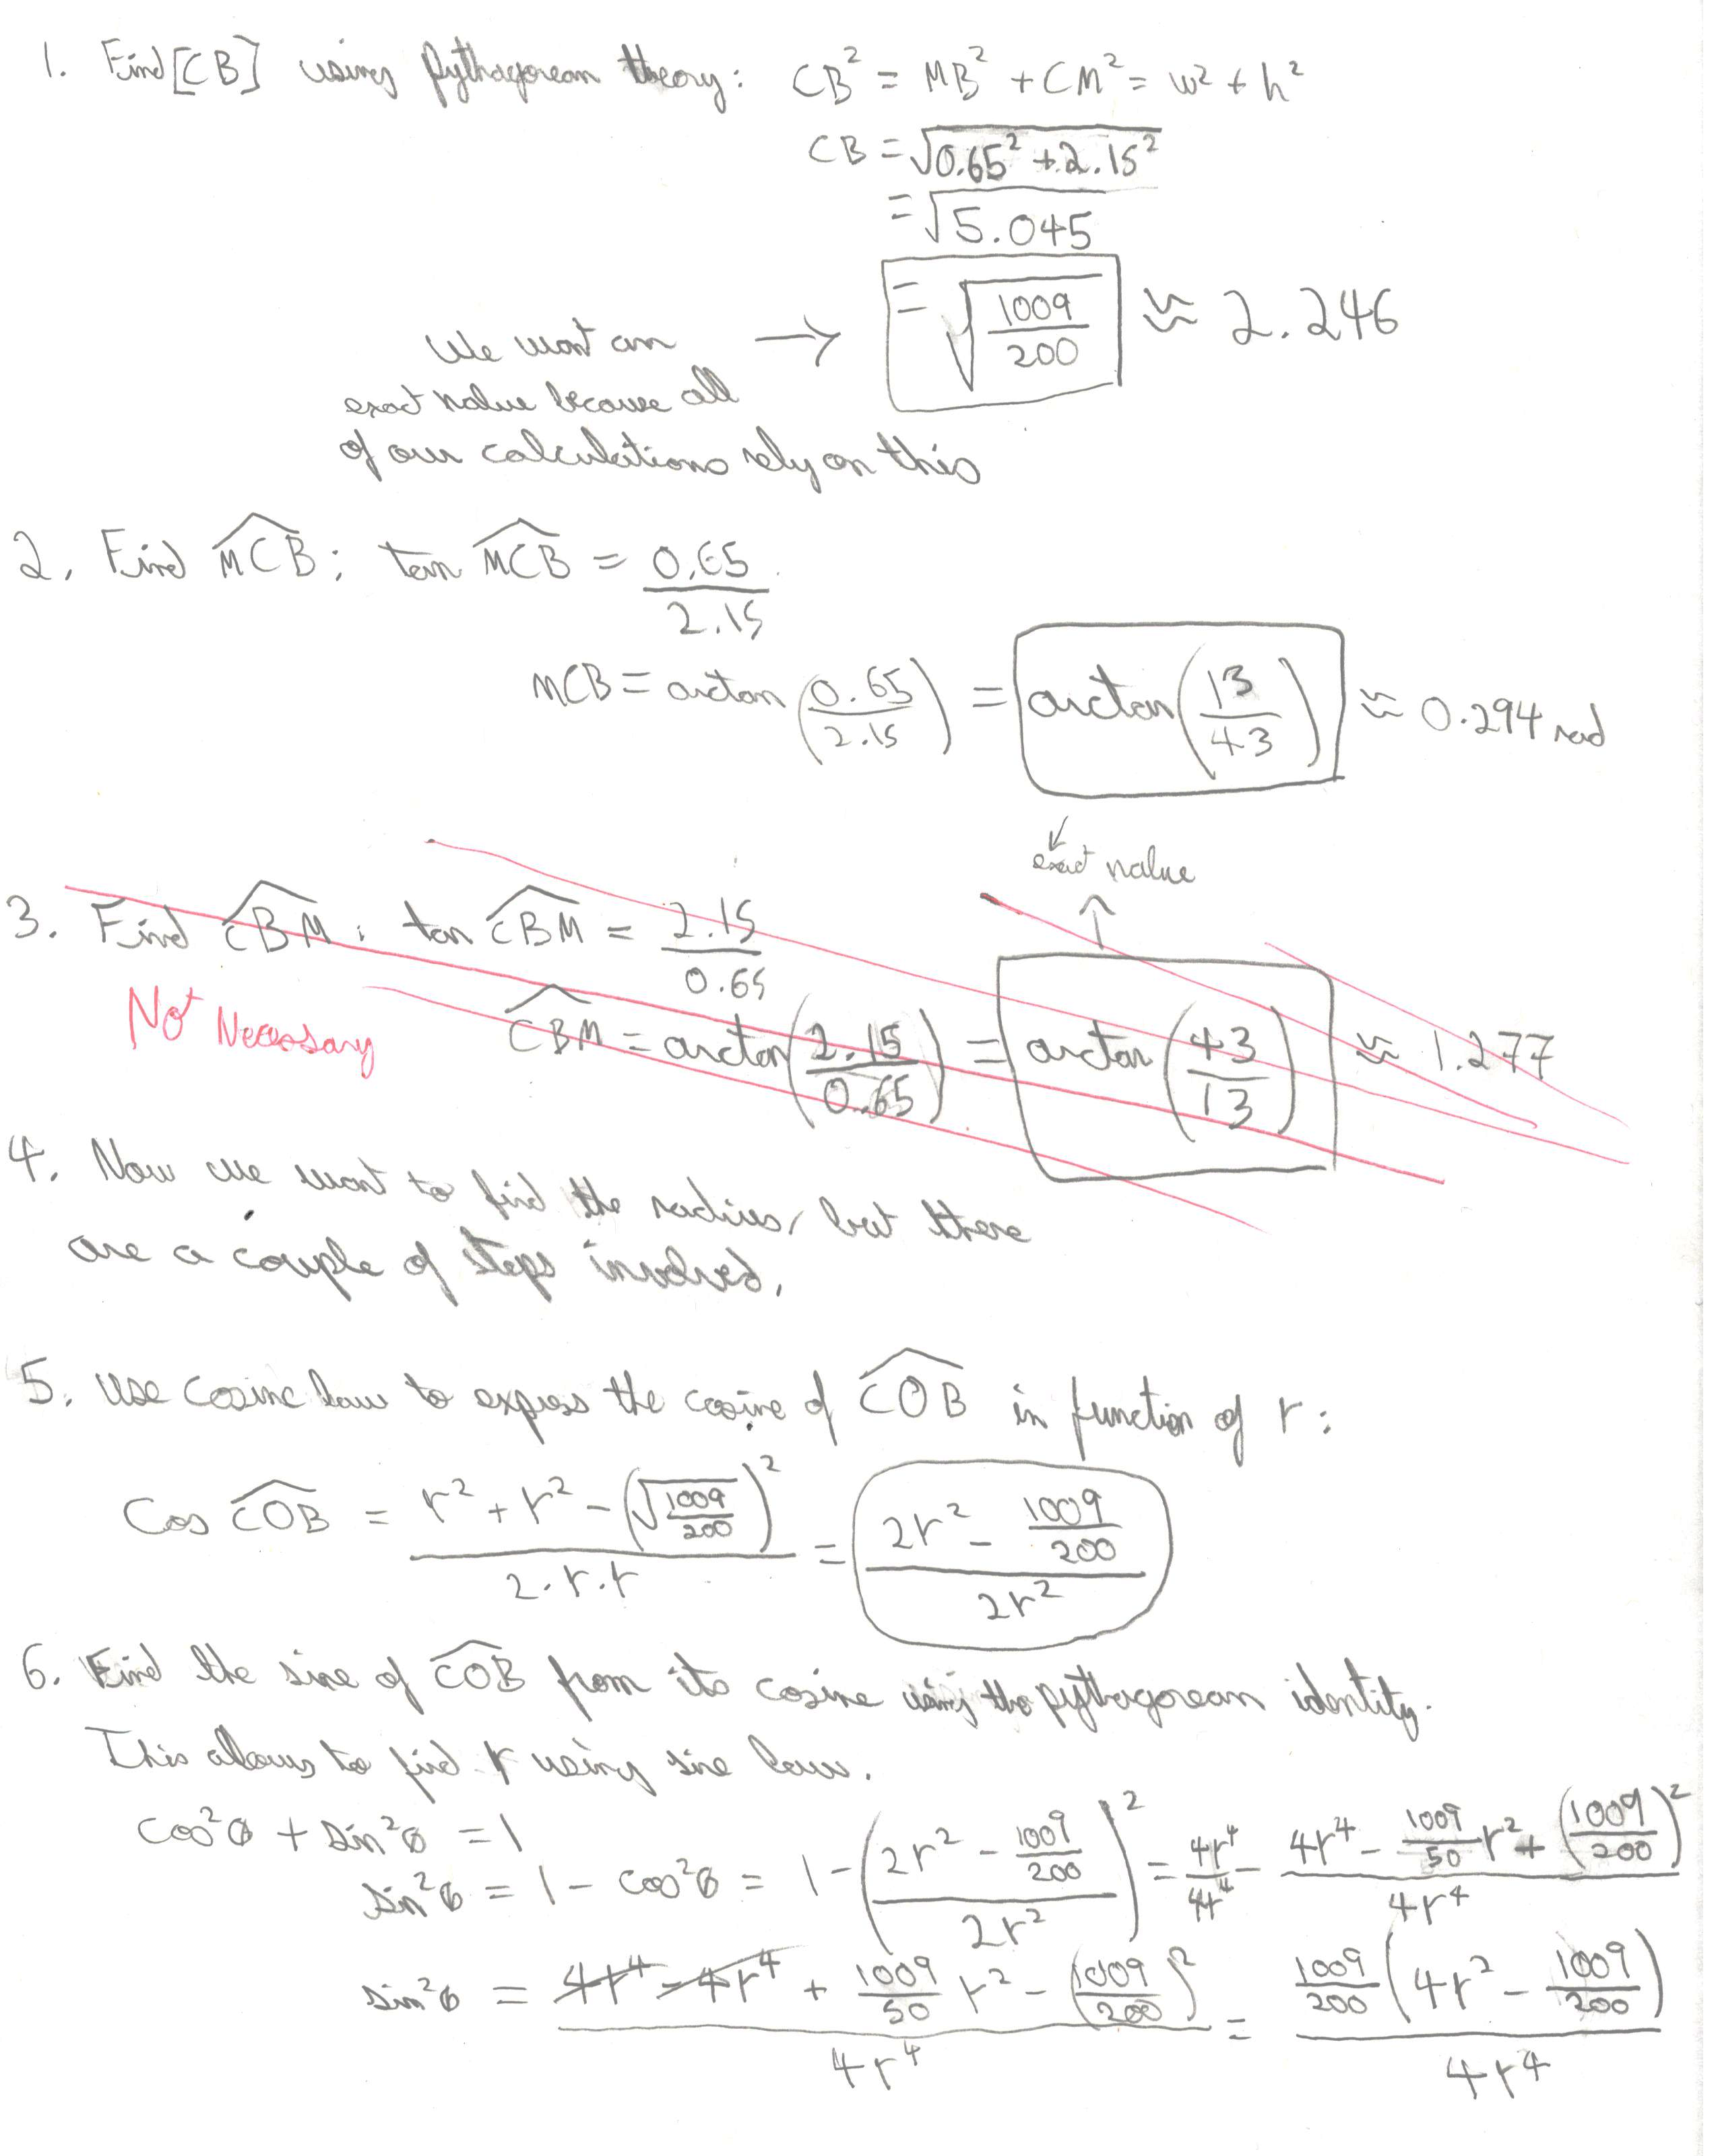 1. Find [CB] using pythagorean theory: CB² = MB² + CM² = w² + h²
CB = √(0.65² + 2.15²)
= √5.045
= √(1009/200) ≈ 2.246
We want an →
exact value because all
of our calculations rely on this
2. Find MCB: tan MCB = 0.65/2.15
MCB = arctan(0.65/2.15) = arctan(13/43) ≈ 0.294 rad
exact value
3. Find CBM: tan CBM = 2.15/0.65
Not Necessary
CBM = arctan(2.15/0.65) = arctan(43/13) ≈ 1.277
4. Now we want to find the radius, but there
are a couple of steps involved.
5. Use cosine law to express the cosine of COB in function of r:
Cos COB = (r² + r² - (√(1009/200))²)/(2·r·r) = (2r² - 1009/200)/(2r²)
6. Find the sine of COB from its cosine using the pythagorean identity.
This allows to find r using sine law.
cos²θ + sin²θ = 1
sin²θ = 1 - cos²θ = 1 - ((2r² - 1009/200)/(2r²))² = 4r⁴/4r⁴ - (4r⁴ - 1009/50 r² + (1009/200)²)/(4r⁴)
sin²θ = (4r⁴ - 4r⁴ + 1009/50 r² - (1009/200)²)/(4r⁴) = (1009/200 (4r² - 1009/200))/(4r⁴)